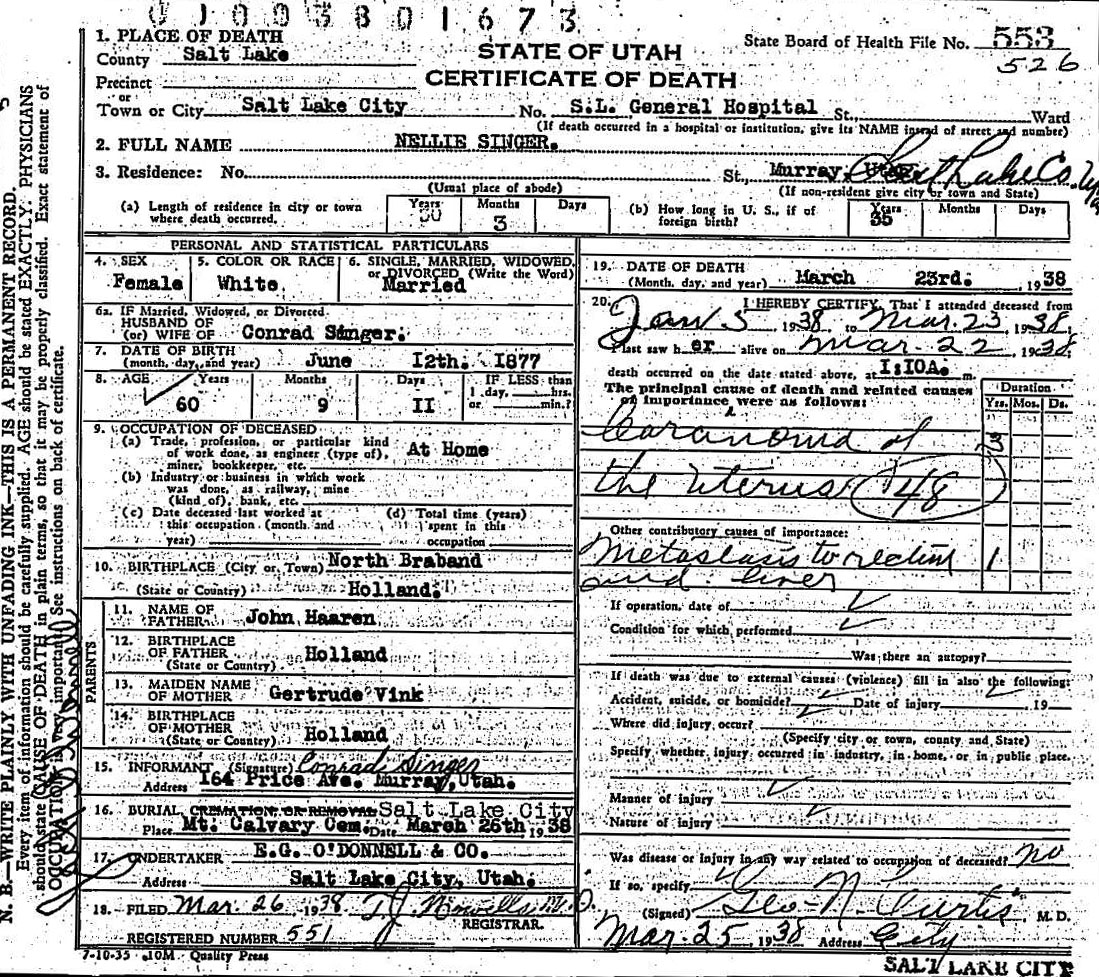 01003801673
1. PLACE OF DEATH
County Salt Lake
STATE OF UTAH
CERTIFICATE OF DEATH
State Board of Health File No. 553
526
Precinct
or
Town or City Salt Lake City No. S.L. General Hospital St., Ward
(If death occurred in a hospital or institution, give its NAME instead of street and number)
2. FULL NAME NELLIE SINGER.
3. Residence: No. St., Murray, Utah Salt Lake Co.
(Usual place of abode) (If non-resident give city or town and State)
(a) Length of residence in city or town where death occurred. Years 30 Months 3 Days
(b) How long in U. S., if of foreign birth? Years 35 Months Days
PERSONAL AND STATISTICAL PARTICULARS
4. SEX Female
5. COLOR OR RACE White
6. SINGLE, MARRIED, WIDOWED, or DIVORCED (Write the Word) Married
6a. IF Married, Widowed, or Divorced
HUSBAND OF
(or) WIFE OF Conrad Singer.
7. DATE OF BIRTH
(month, day, and year) June 12th. 1877
8. AGE Years 60 Months 9 Days 11
IF LESS than
1 day, hrs.
or min.?
9. OCCUPATION OF DECEASED
(a) Trade, profession, or particular kind
of work done, as engineer (type of),
miner, bookkeeper, etc. At Home
(b) Industry or business in which work
was done, as railway, mine
(kind of), bank, etc.
(c) Date deceased last worked at
this occupation (month and
year)
(d) Total time (years)
spent in this
occupation
10. BIRTHPLACE (City or Town) North Braband
(State or Country) Holland.
PARENTS
11. NAME OF
FATHER John Haaren
12. BIRTHPLACE
OF FATHER
(State or Country) Holland
13. MAIDEN NAME
OF MOTHER Gertrude Vink
14. BIRTHPLACE
OF MOTHER
(State or Country) Holland
15. INFORMANT (Signature) Conrad Singer
Address 164 Price Ave. Murray, Utah.
16. BURIAL, CREMATION OR REMOVAL Salt Lake City
Place Mt. Calvary Cem. Date March 26th 1938
17. UNDERTAKER E.G. O'DONNELL & CO.
Address Salt Lake City, Utah.
18. FILED Mar. 26, 1938 T.J. Howells M.D.
REGISTRAR.
REGISTERED NUMBER 551
7-10-35 10M Quality Press
19. DATE OF DEATH
(Month, day, and year) March 23rd. 1938
20. I HEREBY CERTIFY, That I attended deceased from
Jan 5 1938 to Mar. 23, 1938,
I last saw her alive on Mar. 22 1938,
death occurred on the date stated above, at 1:10A. m
The principal cause of death and related causes
of importance were as follows:
Duration
Yrs. Mos. Ds.
Carcinoma of
the Uterus 48
Other contributory causes of importance:
Metastasis to rectum 1
and liver
If operation, date of
Condition for which performed
Was there an autopsy?
If death was due to external causes (violence) fill in also the following:
Accident, suicide, or homicide? Date of injury 19
Where did injury occur?
(Specify city or town, county and State)
Specify whether injury occurred in industry, in home, or in public place.
Manner of injury
Nature of injury
Was disease or injury in any way related to occupation of deceased? no
If so, specify
(Signed) Geo. N. Curtis, M. D.
Mar. 25 1938 Address City
SALT LAKE CITY
N. B.—WRITE PLAINLY WITH UNFADING INK—THIS IS A PERMANENT RECORD.
Every item of information should be carefully supplied. AGE should be stated EXACTLY. PHYSICIANS
should state CAUSE OF DEATH in plain terms, so that it may be properly classified. Exact statement of
OCCUPATION is very important. See instructions on back of certificate.